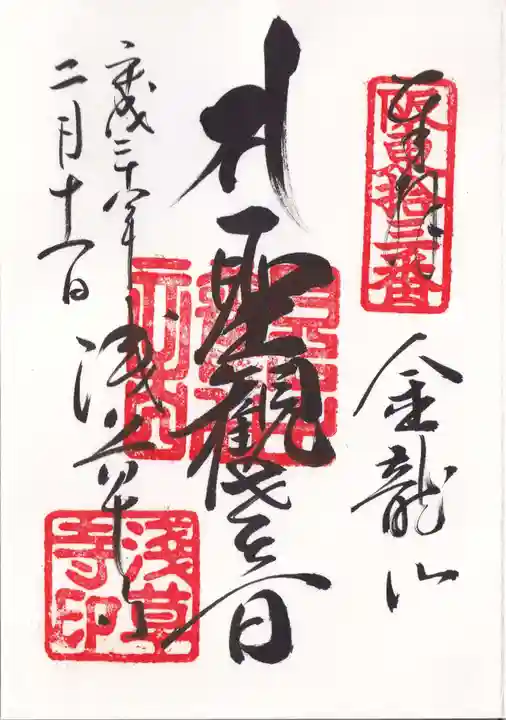 奉拝
坂東拾三番
金龍山
聖観世音
浅草寺
平成二十八年
二月十一日
淺草寺印